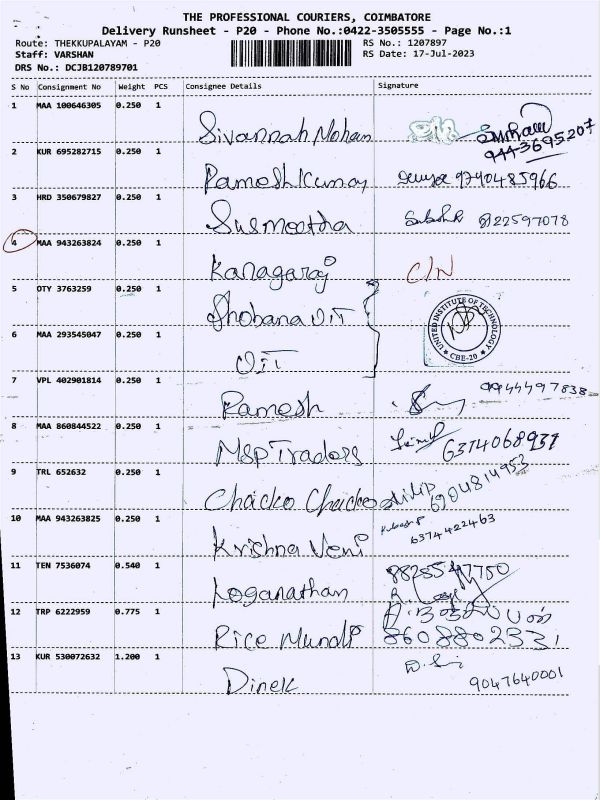 THE PROFESSIONAL COURIERS, COIMBATORE
Delivery Runsheet - P20 - Phone No.:0422-3505555 - Page No.:1
Route: THEKKUPALAYAM - P20 RS No.: 1207897
Staff: VARSHAN RS Date: 17-Jul-2023
DRS No.: DCJB120789701
S No Consignment No Weight PCS Consignee Details Signature
1 MAA 100646305 0.250 1
Sivannah Mohan
9443695207
2 KUR 695282715 0.250 1
Rameshkumar 9790485966
3 HRD 350679827 0.250 1
Susmeetha 8122597078
4 MAA 943263824 0.250 1
Kanagaraj C/N
5 OTY 3763259 0.250 1
Shobana UIT
UNITED INSTITUTE OF TECHNOLOGY
* CBE-20 *
6 MAA 293545047 0.250 1
UIT
7 VPL 402901814 0.250 1
Ramesh 9944497838
8 MAA 860844522 0.250 1
MSP Traders 6374068937
9 TRL 652632 0.250 1
Chacko Chacko Dilip
6904814953
10 MAA 943263825 0.250 1
Krishna Veni 6374422463
11 TEN 7536074 0.540 1
Loganathan
12 TRP 6222959 0.775 1
Rice Mundi 8608802331
13 KUR 530072632 1.200 1
Dinek 9047640001